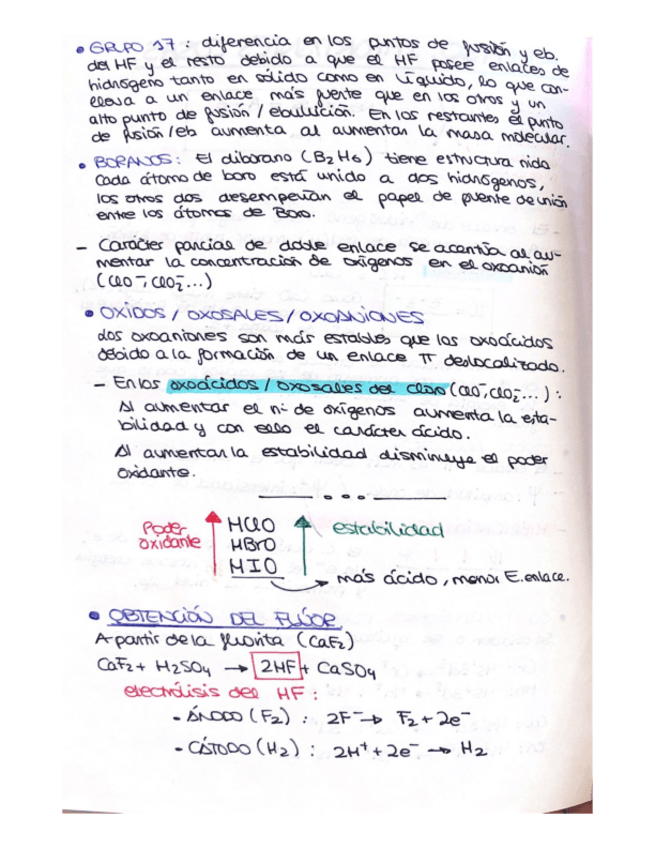 • GRUPO 17 : diferencia en los puntos de fusión y eb.
del HF y el resto debido a que el HF posee enlaces de
hidrógeno tanto en sólido como en líquido, lo que con-
lleva a un enlace más fuerte que en los otros y un
alto punto de fusión / ebullición. En los restantes el punto
de fusión/eb aumenta al aumentar la masa molecular.
• BORANOS: El diborano (B2H6) tiene estructura nido
Cada átomo de boro está unido a dos hidrógenos,
los otros dos desempeñan el papel de puente de unión
entre los átomos de Boro.
- Carácter parcial de doble enlace se acentúa al au-
mentar la concentración de oxígenos en el oxoanión
(ClO⁻, ClO2⁻...)
• OXIDOS / OXOSALES / OXOANIONES
Los oxoaniones son más estables que los oxoácidos
debido a la formación de un enlace π deslocalizado.
- En los oxoácidos / oxosales del cloro (ClO⁻, ClO2⁻...) :
Al aumentar el nº de oxígenos aumenta la esta-
bilidad y con ello el carácter ácido.
Al aumentar la estabilidad disminuye el poder
oxidante.
Poder oxidante ↑ HClO ↑ estabilidad
HBrO
HIO
más ácido, menor E.enlace.
• OBTENCIÓN DEL FLÚOR
A partir de la fluorita (CaF2)
CaF2 + H2SO4 → 2HF + CaSO4
electrólisis del HF :
- ÁNODO (F2) : 2F⁻ → F2 + 2e⁻
- CÁTODO (H2) : 2H⁺ + 2e⁻ → H2